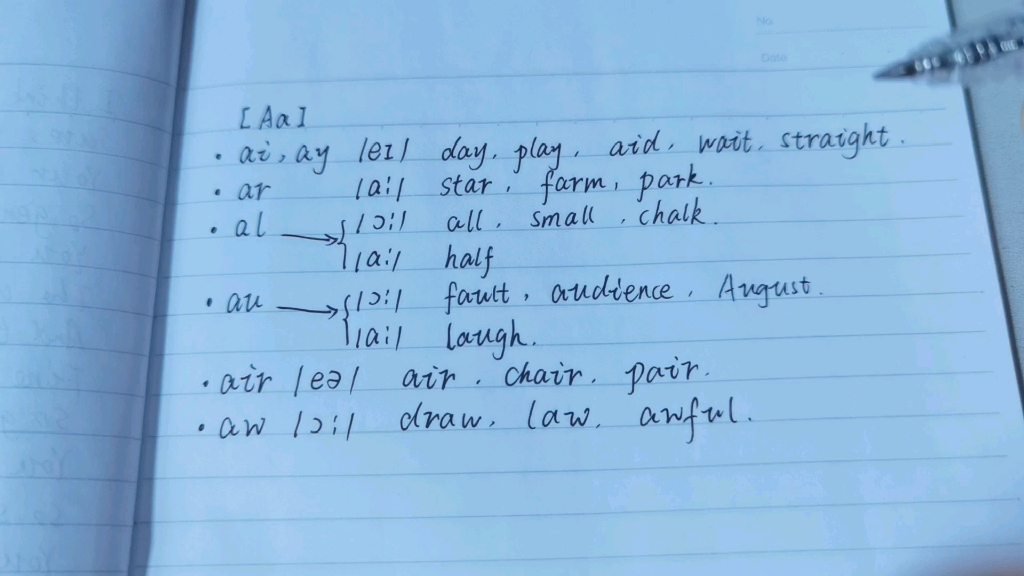 No.
Date
[Aa]
· ai, ay /eɪ/ day, play, aid, wait, straight.
· ar /ɑː/ star, farm, park.
· al → { /ɔː/ all, small, chalk.
/ɑː/ half
· au → { /ɔː/ fault, audience, August.
/ɑː/ laugh.
· air /eə/ air, chair, pair.
· aw /ɔː/ draw, law, awful.